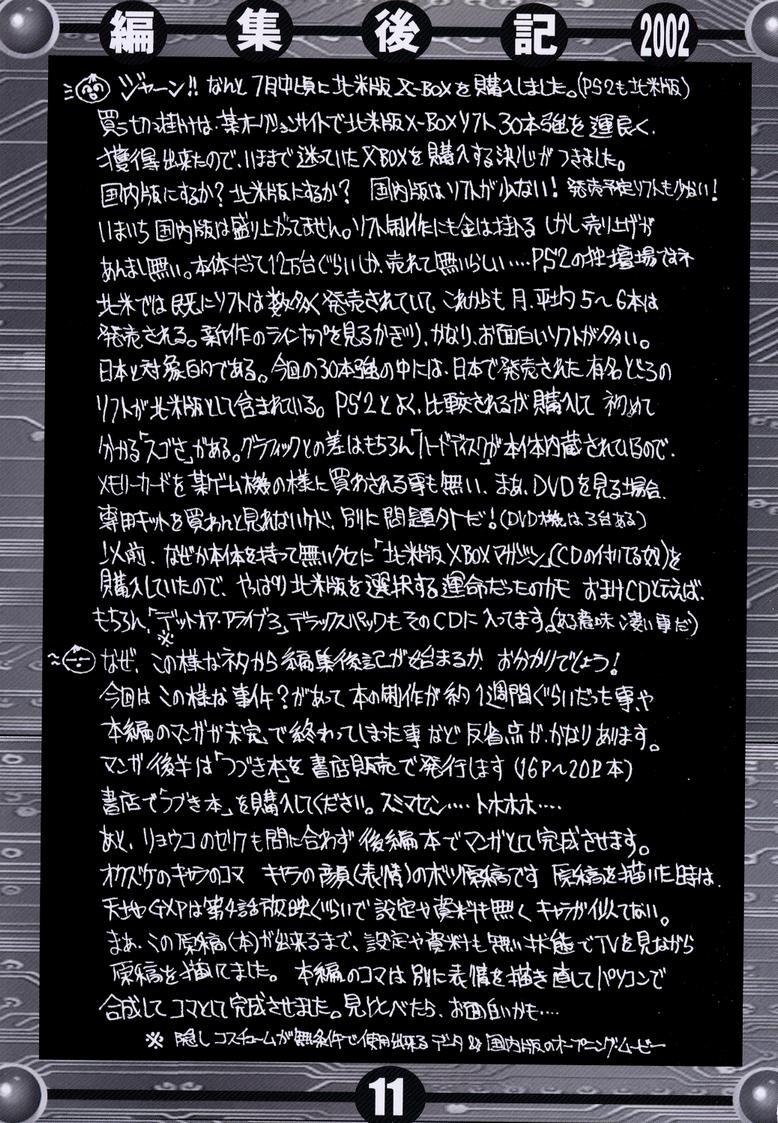 編集後記 2002
ジャーン!! なんと 7月中頃に北米版 X-BOXを購入しました。(PS2も北米版)
買う切っ掛けは、某オークションサイトで北米版X-BOXソフト30本強を運良く、
獲得出来たので、いままで迷っていたXBOXを購入する決心がつきました。
国内版にするか? 北米版にするか? 国内版はソフトが少ない! 発売予定ソフトも少ない!
いまいち国内版は盛り上がってません。ソフト制作にも金は掛る しかし売り上げが
あんまし無い。本体だって12万台ぐらいしか、売れて無いらしい‥‥PS2の独壇場ですネ
北米では既にソフトは数多く発売されていて、これからも月、平均5〜6本は
発売される。新作のラインナップを見るかぎり、かなり、お面白いソフトが多い。
日本と対象的である。今回の30本強の中には、日本で発売された有名どころの
ソフトが北米版として含まれている。PS2とよく、比較されるが購入して 初めて
分かる「スゴさ」がある。グラフィックとの差はもちろん「ハードディスク」が本体内蔵されているので、
メモリーカードを某ゲーム機の様に買わされる事も無い、まあ、DVDを見る場合、
専用キットを買わんと見れないけど、別に問題外だ!(DVD機は3台ある)
以前、なぜか本体を持って無いクセに「北米版XBOXマガジン」(CDの付いてる奴)を
購入していたので、やっぱり北米版を選択する運命だったのかも おまけCDと云えば、
もちろん、「デッドオア・アライブ3」デラックスパックもそのCDに入ってます。(ある意味凄い事だ)
※
なぜ、この様なネタから編集後記が始まるか お分かりでしょう!
今回はこの様な事件?があって 本の制作が約1週間ぐらいだった事や
本編のマンガが未完、で終わってしまった事など 反省点が、かなりあります。
マンガ後半は「つづき本」を書店販売で発行します(16P〜20P本)
書店で「つづき本」を購入してください。スミマセン‥‥トホホホ‥‥
あと、リョウコの も間に合わず 後編本でマンガとして完成させます。
オクズケのキャラのコマ キャラの顔(表情)のボツ原稿です 原稿を描いた時は、
天地GXPは第4話放映ぐらいで設定や資料も無く キャラが似てない。
まあ、この原稿(本)が出来るまで、設定や資料も無い状態でTVを見ながら
原稿を描いてました。 本編のコマは別に表情を描き直してパソコンで
合成してコマとして完成させました。見比べたら、お面白いかも‥‥
※ 隠しコスチュームが無条件で使用出来るデータ&国内版のオープニング・ムービー
11